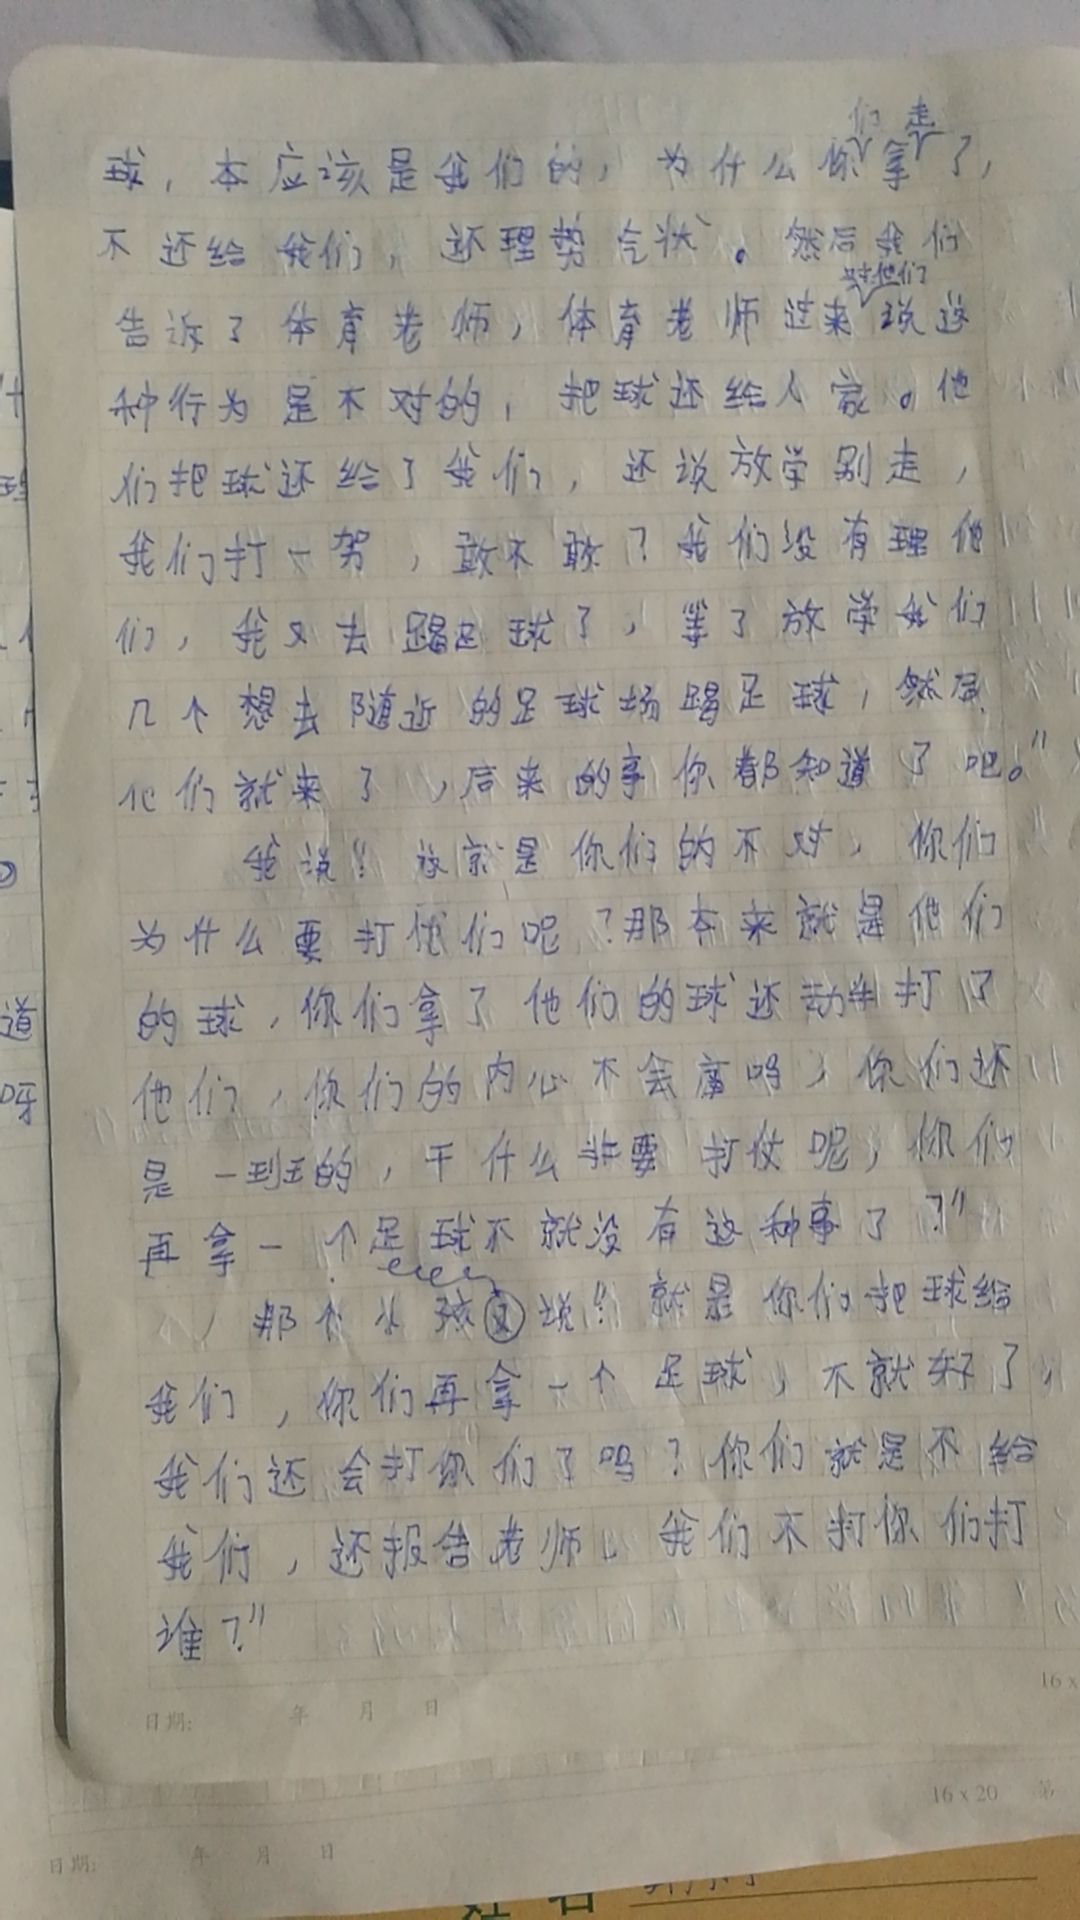 球，本应该是我们的，为什么你们拿走了，
不还给我们，还理势气状。然后我们
告诉了体育老师，体育老师过来对他们说这
种行为是不对的，把球还给人家。他
们把球还给了我们，还说放学别走，
我们打一架，敢不敢？我们没有理他
们，我又去踢足球了，等了放学我们
几个想去随近的足球场踢足球，然后
他们就来了，后来的事你都知道了吧。”
我说“这就是你们的不对，你们
为什么要打他们呢？那本来就是他们
的球，你们拿了他们的球还动手打了
他们，你们的内心不会痛吗，你们还
是一班的，干什么非要打仗呢，你们
再拿一个足球不就没有这种事了？”
那个小孩又说“就是你们把球给
我们，你们再拿一个足球，不就好了，
我们还会打你们了吗？你们就是不给
我们，还报告老师。我们不打你们打
谁？”
日期: 年 月 日
16 x
16 x 20 第
日期: 年 月 日
姓名
道
呀